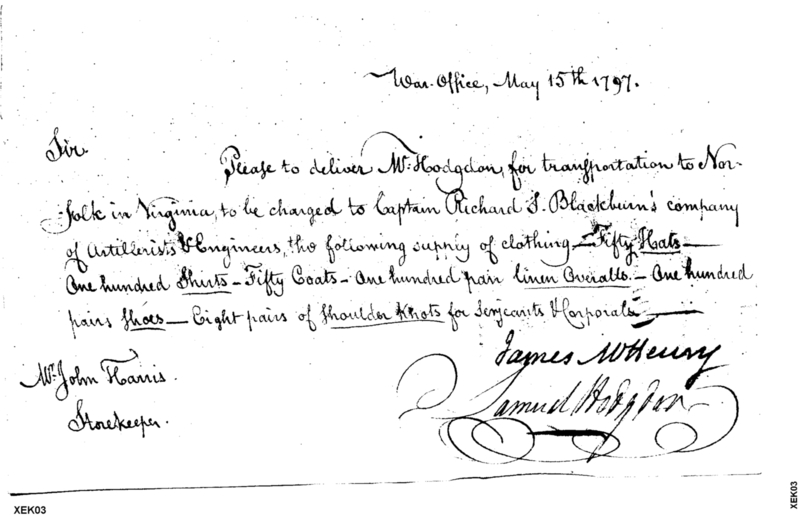 War-Office, May 15th 1797.
Sir.
Please to deliver Mr. Hodgdon, for transportation to Nor-
folk in Virginia, to be charged to Captain Richard S. Blackburn's company
of Artillerists & Engineers, the following supply of clothing — Fifty Hats —
One hundred Shirts — Fifty Coats — One hundred pair linen Overalls. — One hundred
pairs Shoes — Eight pairs of Shoulder Knots for Serjeants & Corporals —
James McHenry
Mr. John Harris.
Samuel Hodgdon
Storekeeper.
XEK03
XEK03